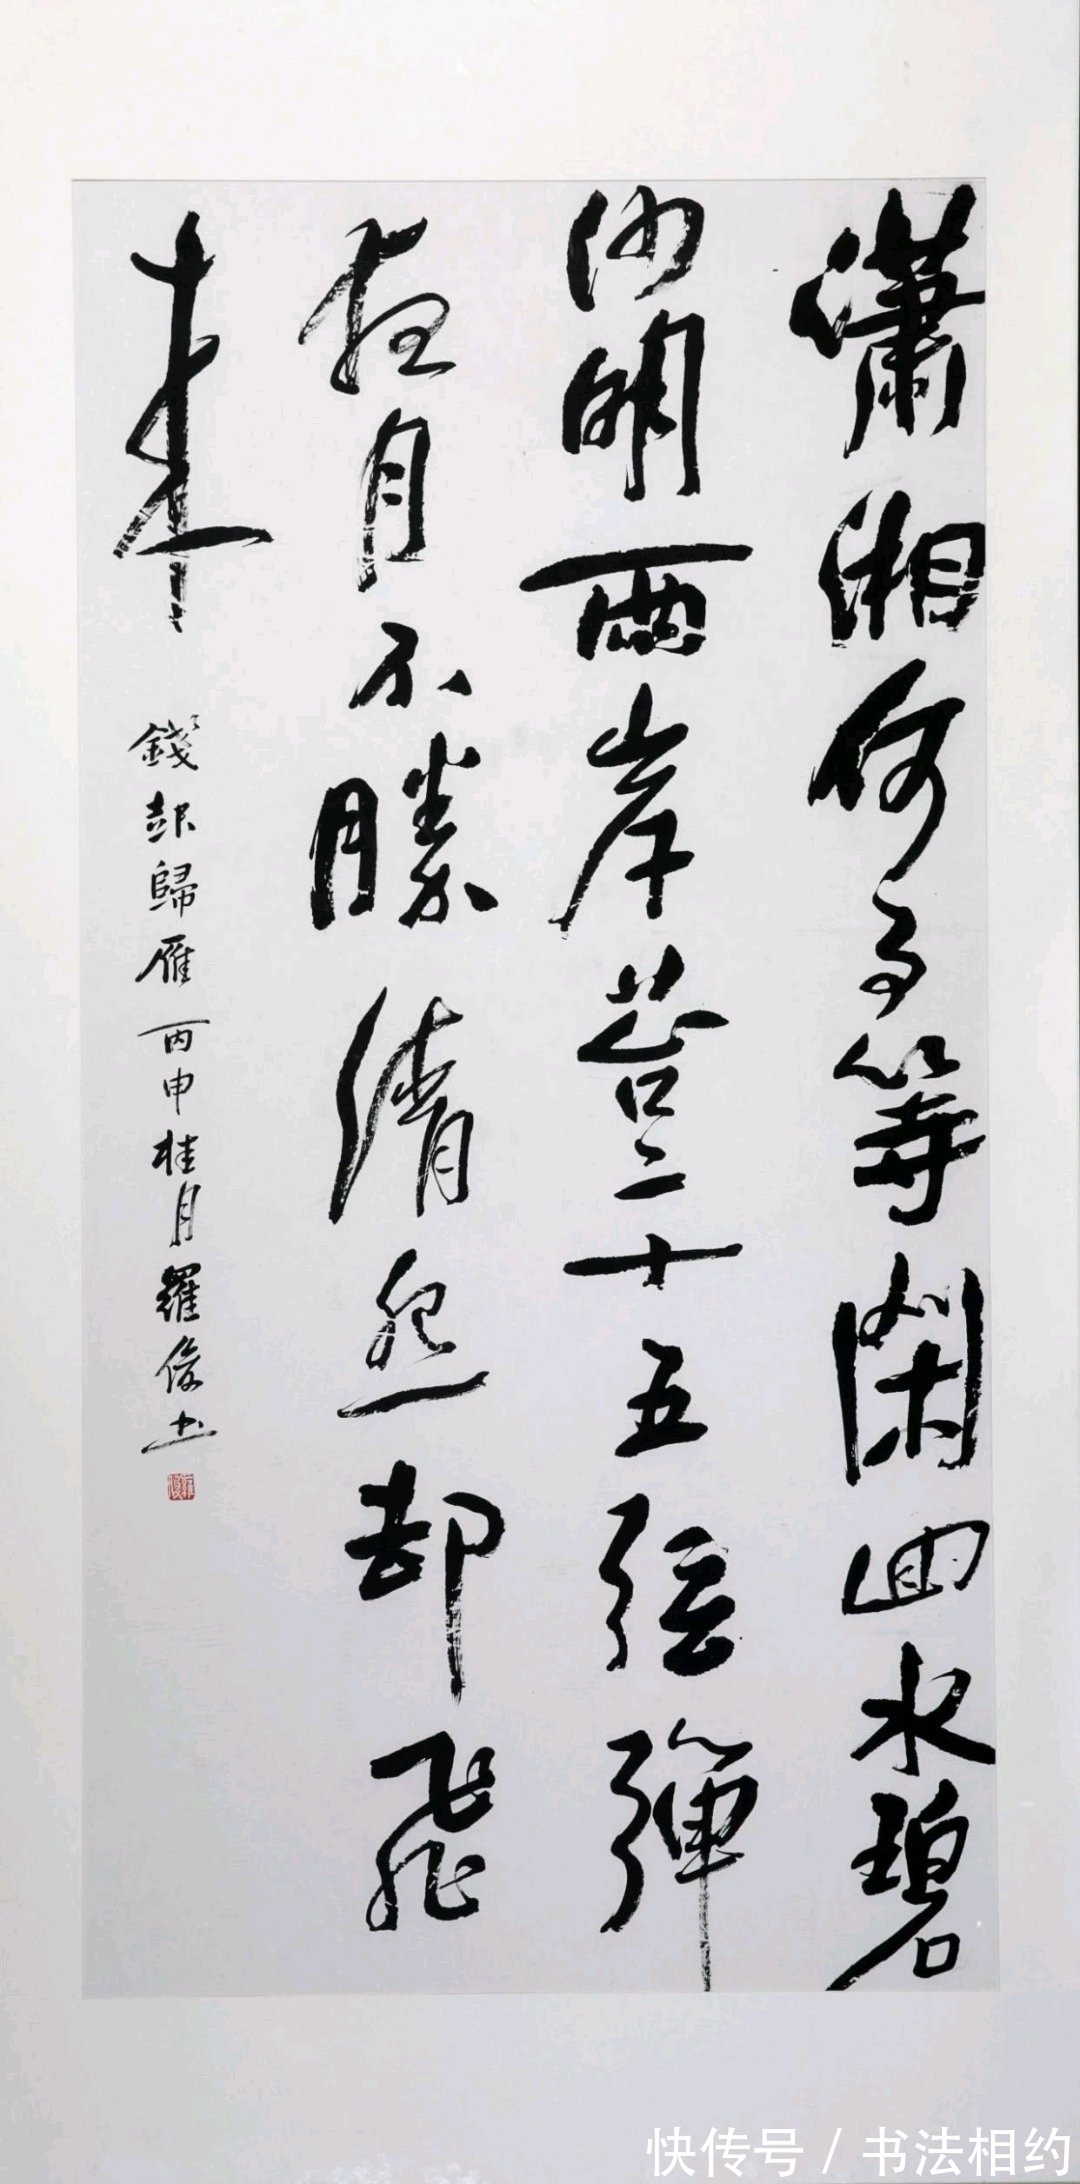 瀟湘何事等閑回水碧
沙明兩岸苔二十五弦彈
夜月不勝清怨却飛
来
錢起歸雁 丙申桂月羅俊书
快传号 / 书法相约